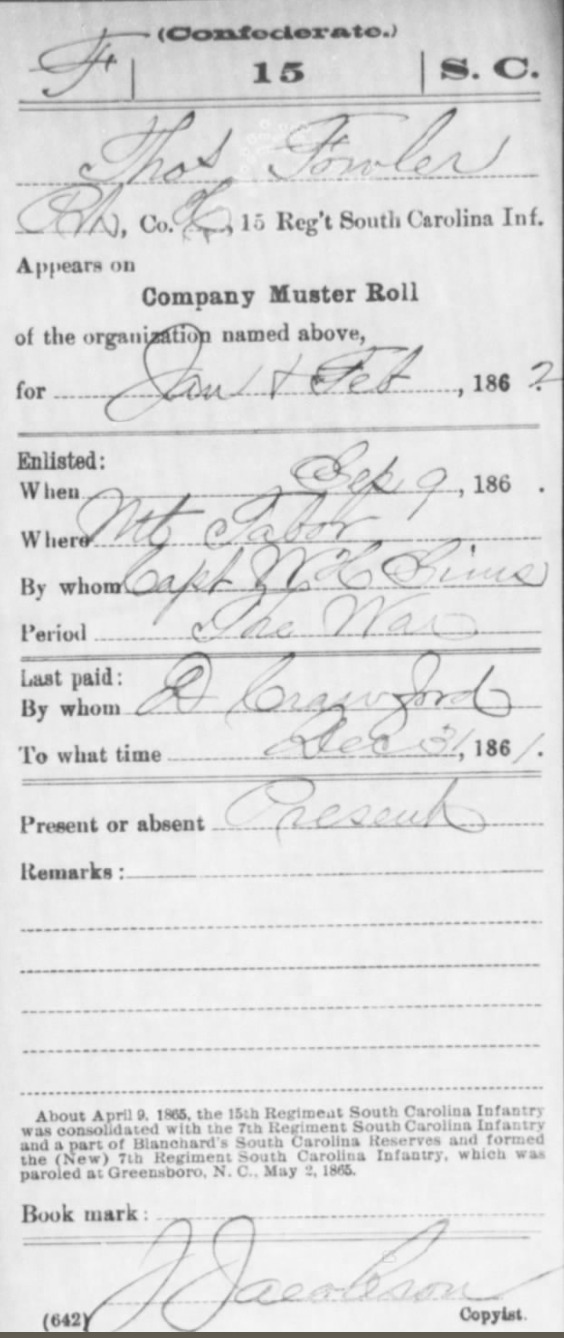 (Confederate.)
F | 15 | S. C.
Thos Fowler
Pvt, Co. , 15 Reg't South Carolina Inf.
Appears on
Company Muster Roll
of the organization named above,
for Jan & Feb, 186 2.
Enlisted:
When Sep 9, 186 .
Where Mt Tabor
By whom Capt W H Sims
Period The War
Last paid:
By whom D Crawford
To what time Dec 31, 1861.
Present or absent Present
Remarks:
About April 9, 1865, the 15th Regiment South Carolina Infantry
was consolidated with the 7th Regiment South Carolina Infantry
and a part of Blanchard's South Carolina Reserves and formed
the (New) 7th Regiment South Carolina Infantry, which was
paroled at Greensboro, N. C., May 2, 1865.
Book mark:
J Jacobson
(642) Copyist.